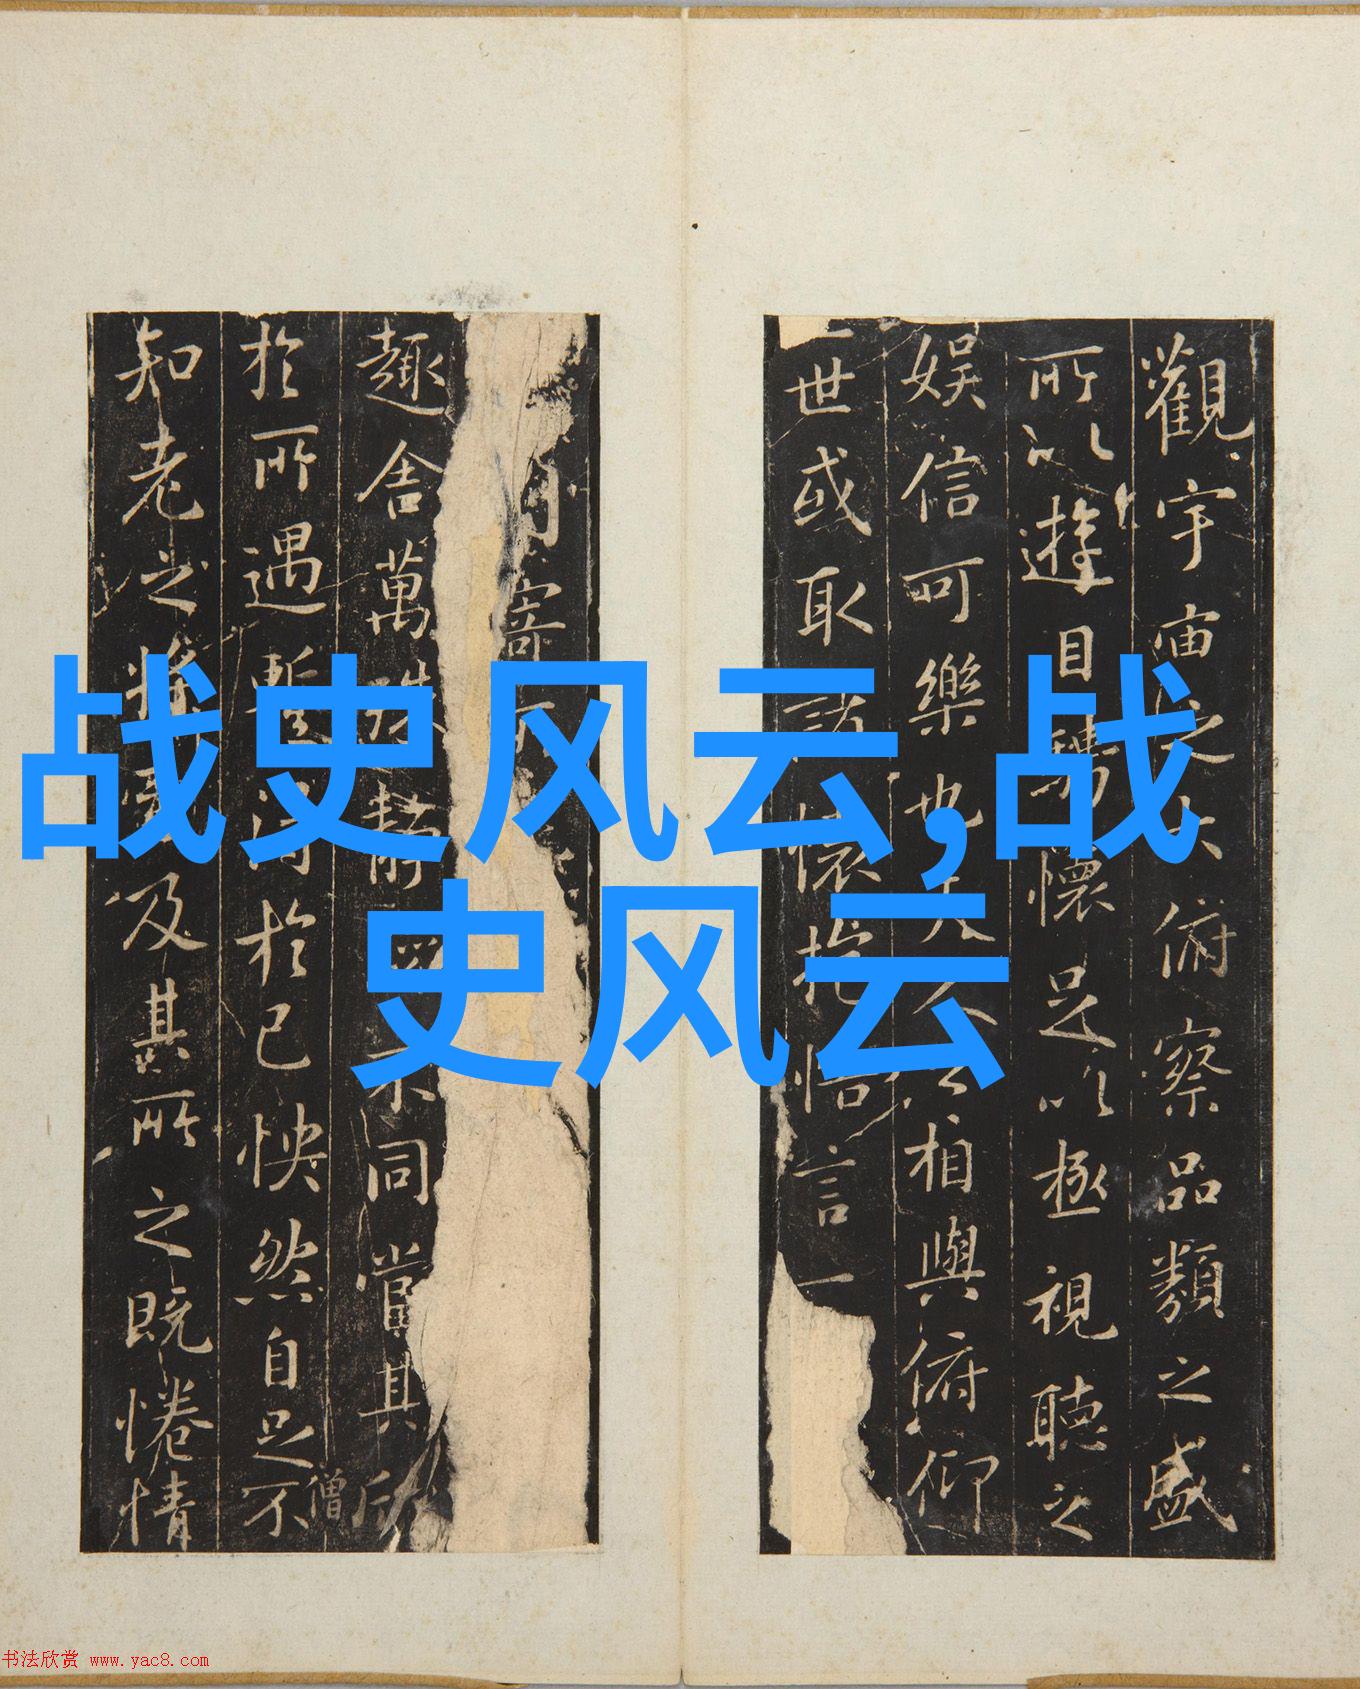 战史风云,战
史风云
觀宇宙之大俯察品類之盛
所以遊目騁懷足以極視聽之
娛信可樂也夫人之相與俯仰
一世或取諸懷抱悟言一
寄
趣舍萬殊靜不同當其欣
僧
於所遇暫得於己怏然自足不
知老之將至及其所之既惓情
书法欣赏 www.yac8.com